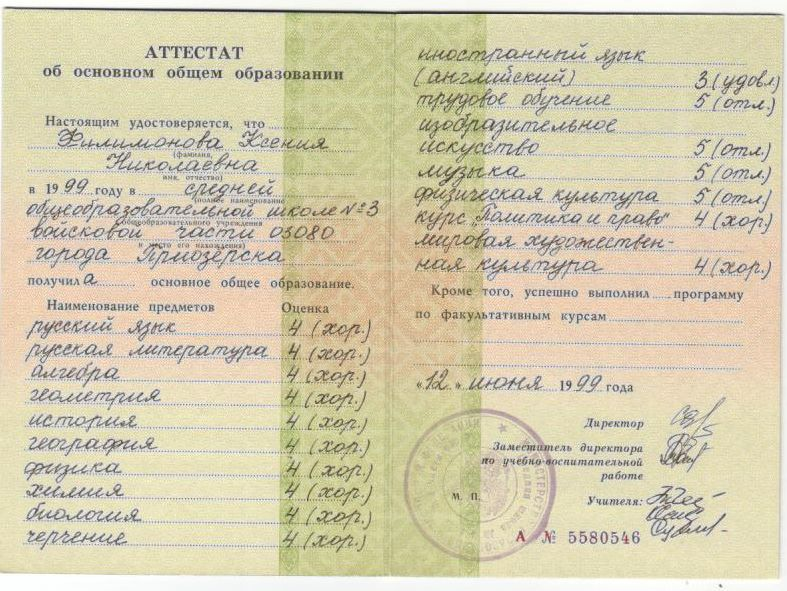 АТТЕСТАТ
об основном общем образовании
Настоящим удостоверяется, что
Филимонова Ксения
(фамилия,
Николаевна
имя, отчество)
в 1999 году в средней
(полное наименование
общеобразовательной школе №3
общеобразовательного учреждения
войсковой части 03080
и место его нахождения)
города Приозёрска
получила основное общее образование.
Наименование предметов Оценка
русский язык 4 (хор.)
русская литература 4 (хор.)
алгебра 4 (хор.)
геометрия 4 (хор.)
история 4 (хор.)
география 4 (хор.)
физика 4 (хор.)
химия 4 (хор.)
биология 4 (хор.)
черчение 4 (хор.)
иностранный язык
(английский) 3 (удовл)
трудовое обучение 5 (отл.)
изобразительное
искусство 5 (отл.)
музыка 5 (отл.)
физическая культура 5 (отл.)
курс "Политика и право" 4 (хор.)
мировая художествен-
ная культура 4 (хор.)
Кроме того, успешно выполнил программу
по факультативным курсам
«12» июня 1999 года
Директор
Заместитель директора
по учебно-воспитательной
работе
М. П.
Учителя:
А № 5580546